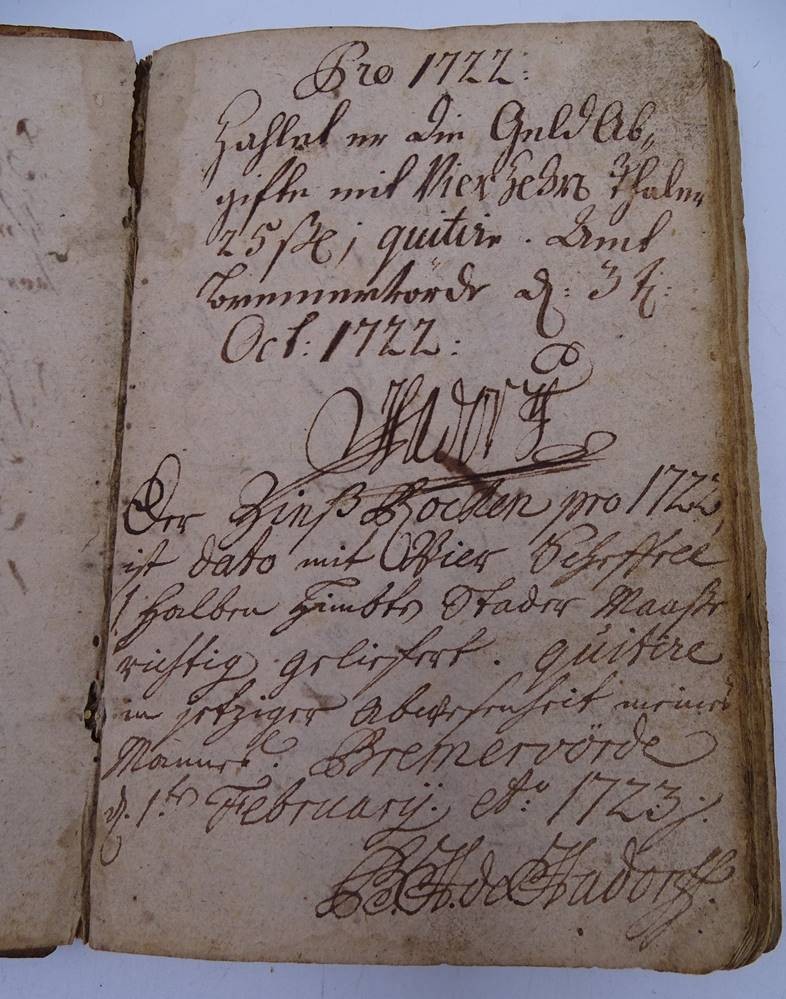 Pro 1722:
Zahlet er die Geld Ab„
gifte mit Vierzehn Thaler
25 ß; quitire. Amt
Bremervörde d: 3t:
Oct: 1722:
Hadorff
Der Zinß Rocken pro 1722,
ist dato mit Vier Scheffell
1 halben Himbten Stader Maaße
richtig geliefert. quitire
in jetziger Abwesenheit meines
Mannes. Bremervörde
d. 1ten February: Ao 1723.
B. H. de Hadorff.